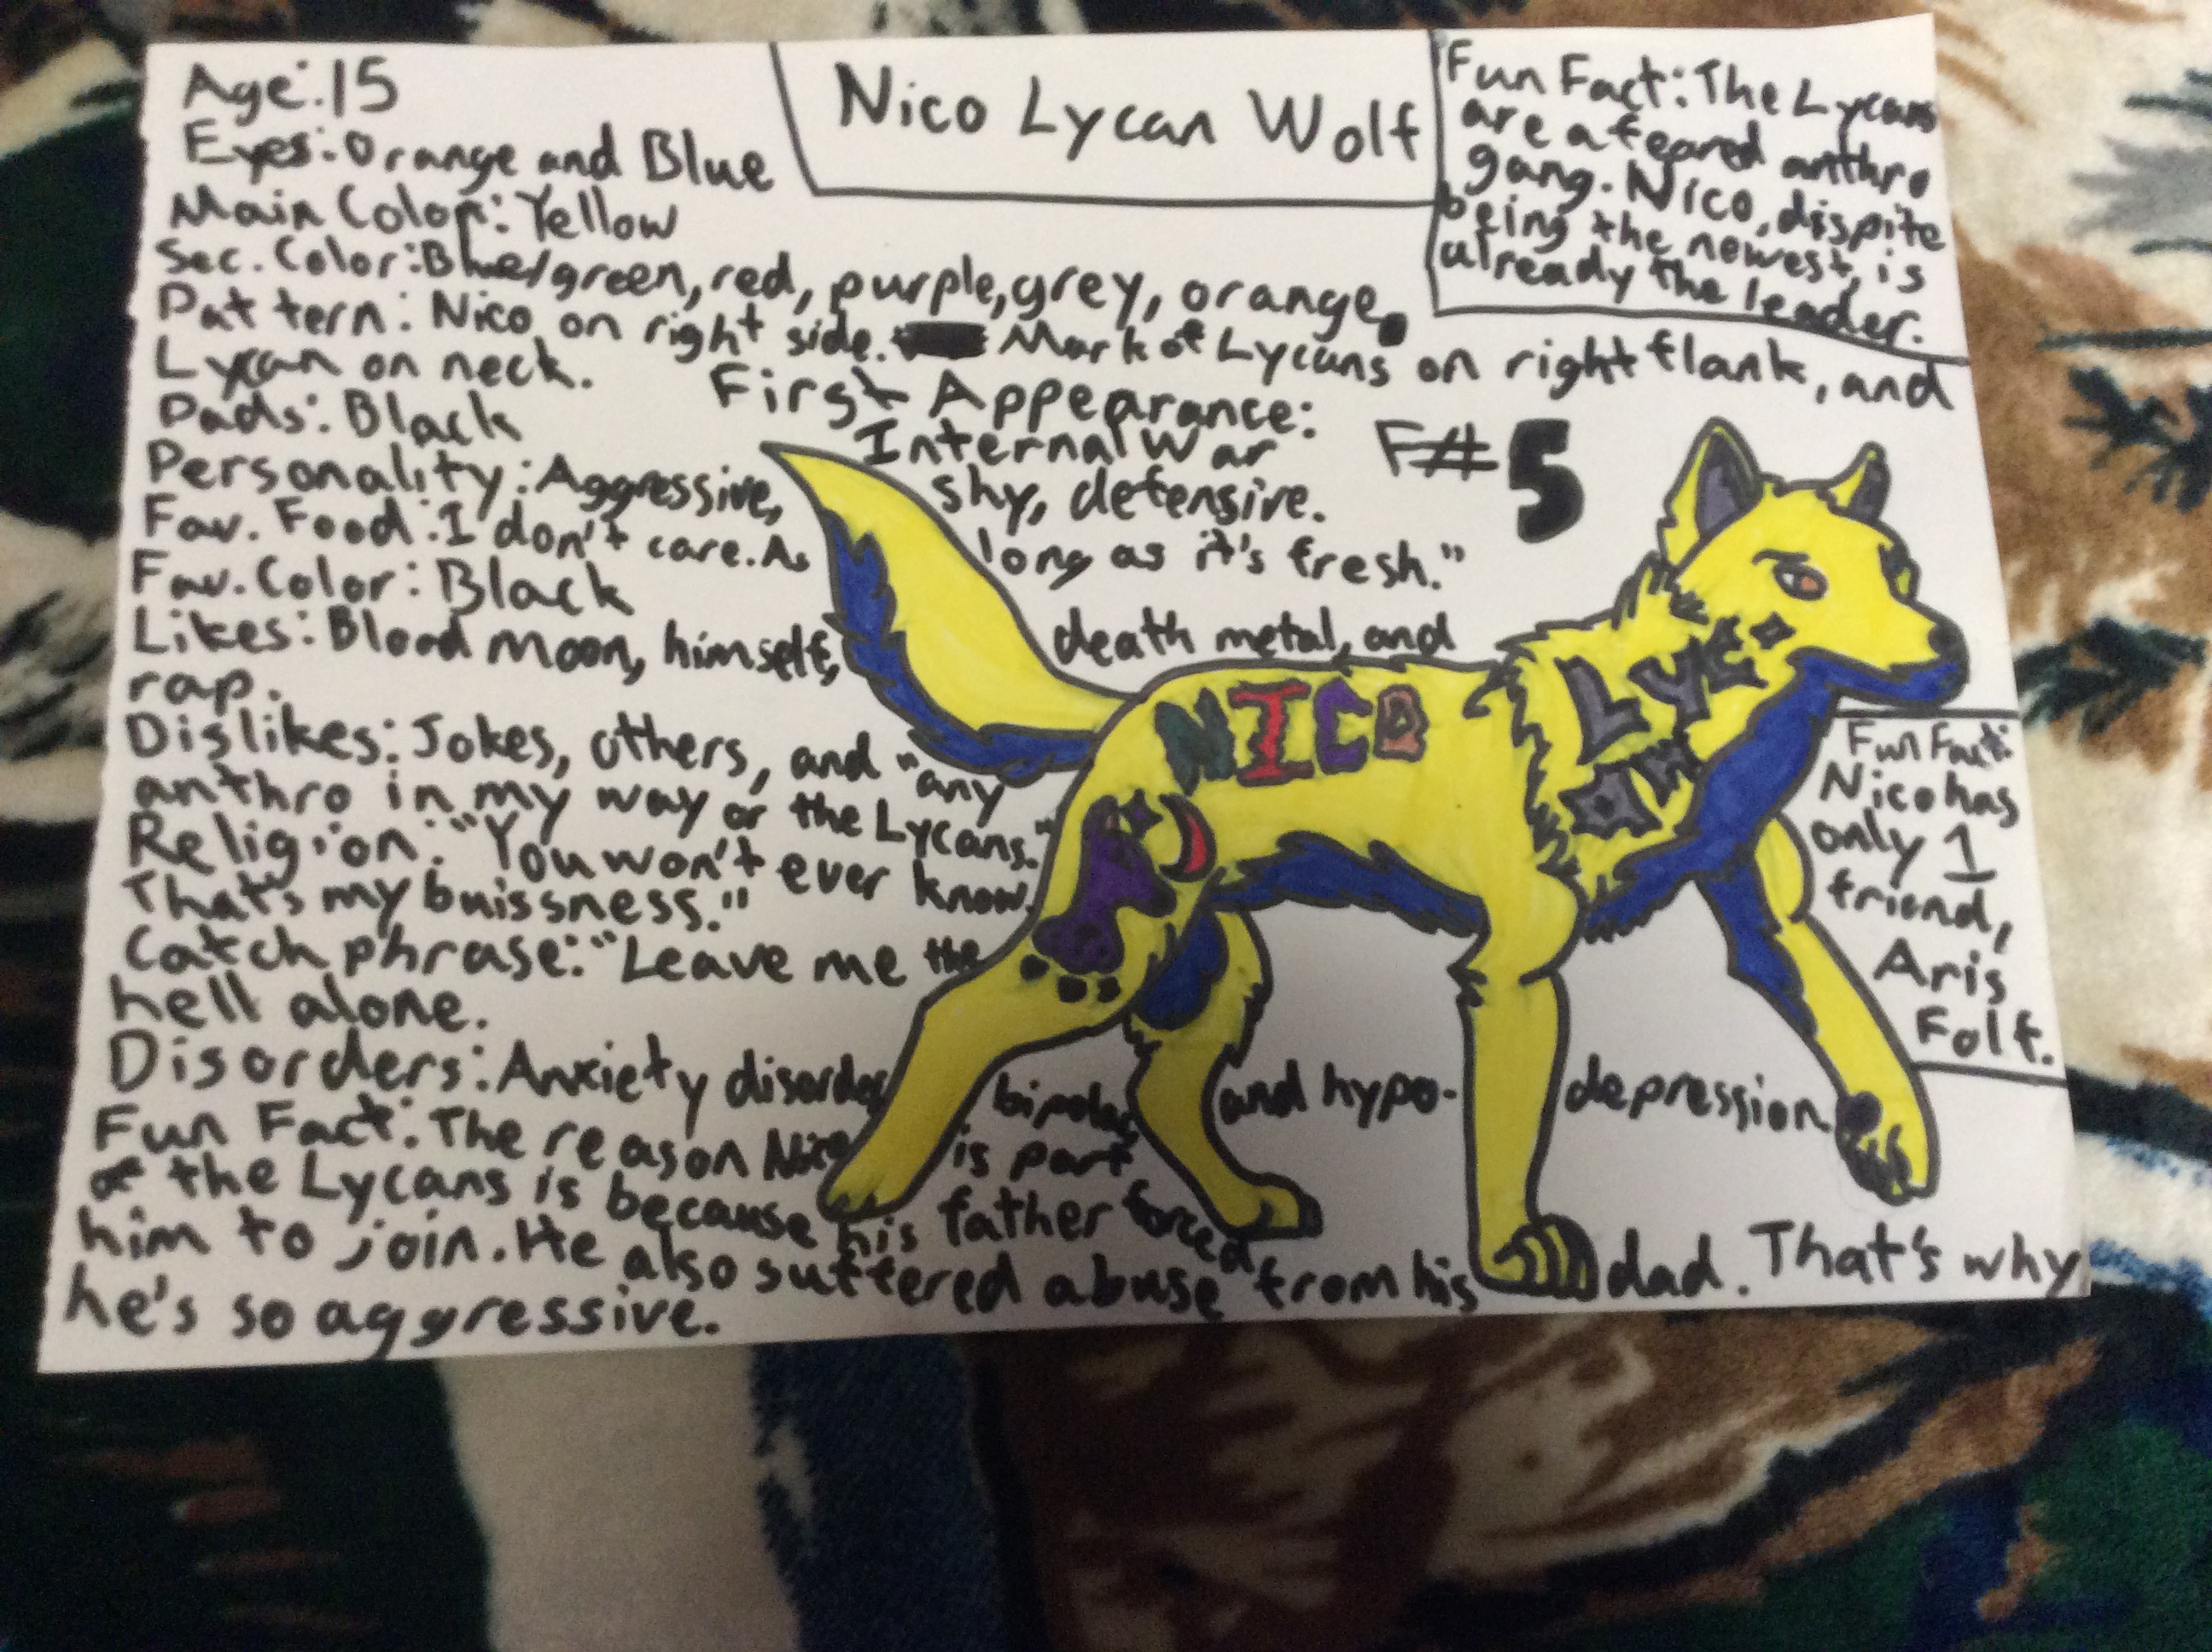 Nico Lycan Wolf
Fun Fact: The Lycans
are a feared anthro
gang. Nico, dispite
being the newest, is
already the leader.
Age: 15
Eyes: Orange and Blue
Main Color: Yellow
Sec. Color: Blue/green, red, purple, grey, orange.
Pattern: Nico on right side. Mark of Lycans on right flank, and
Lycan on neck.
First Appearance:
Internal War
F#5
Pads: Black
Personality: Aggressive, shy, defensive.
Fav. Food: I don't care. As long as it's fresh."
Fav. Color: Black
Likes: Blood Moon, himself, death metal, and
rap.
Dislikes: Jokes, others, and "any
anthro in my way or the Lycans."
Religion: "You won't ever know.
That's my buissness."
Catch phrase: "Leave me the
hell alone.
Disorders: Anxiety disorder bipolar and hypo- depression
Fun Fact: The reason Nico is part
of the Lycans is because his father forced
him to join. He also suffered abuse from his dad. That's why
he's so aggressive.
NICO
LYC
AN
Fun Fact:
Nico has
only 1
friend,
Aris
Folf.